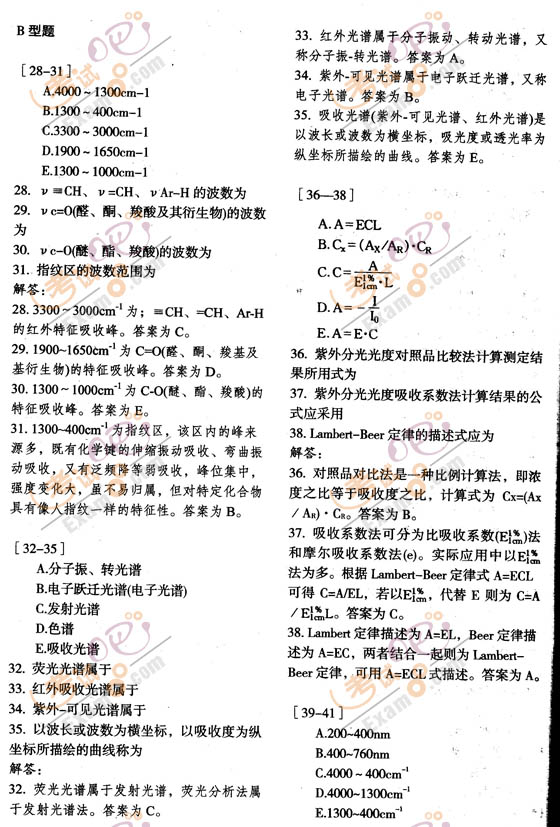 B 型题
[28-31]
A.4000～1300cm-1
B.1300～400cm-1
C.3300～3000cm-1
D.1900~1650cm-1
E.1300～1000cm-1
28. ν≡CH、ν=CH、νAr-H 的波数为
29. νc=O(醛、酮、羧酸及其衍生物)的波数
为
30. νc-O(醚、酯、羧酸)的波数为
31. 指纹区的波数范围为
解答:
28.3300~3000cm⁻¹ 为；≡CH、=CH、Ar-H
的红外特征吸收峰。答案为 C。
29.1900~1650cm⁻¹ 为 C=O(醛、酮、羧基及
基衍生物)的特征吸收峰。答案为 D。
30.1300～1000cm⁻¹ 为 C-O(醚、酯、羧酸)的
特征吸收峰。答案为 E。
31.1300~400cm⁻¹ 为指纹区，该区内的峰来
源多，既有化学键的伸缩振动吸收、弯曲振
动吸收，又有泛频降等弱吸收，峰位集中，
强度变化大，虽不易归属，但对特定化合物
具有像人指纹一样的特征性。答案为 B。
[32-35]
A.分子振、转光谱
B.电子跃迁光谱(电子光谱)
C.发射光谱
D.色谱
E.吸收光谱
32. 荧光光谱属于
33. 红外吸收光谱属于
34. 紫外-可见光谱属于
35. 以波长或波数为横坐标，以吸收度为纵
坐标所描绘的曲线称为
解答:
32. 荧光光谱属于发射光谱，荧光分析法属
于发射光谱法。答案为 C。
33. 红外光谱属于分子振动、转动光谱，又
称分子振-转光谱。答案为 A。
34. 紫外-可见光谱属于电子跃迁光谱，又称
电子光谱。答案为 B。
35. 吸收光谱(紫外-可见光谱、红外光谱)是
以波长或波数为横坐标，吸光度或透光率为
纵坐标所描绘的曲线。答案为 E。
[36—38]
A. A=ECL
B. Cₓ=(Aₓ/A_R)·C_R
C. C=A/(E1%1cm·L)
D. A=－I/I₀
E. A=E·C
36. 紫外分光光度对照品比较法计算测定结
果所用式为
37. 紫外分光光度吸收系数法计算结果的公
式应采用
38. Lambert-Beer 定律的描述式应为
解答:
36. 对照品对比法是一种比例计算法，即浓
度之比等于吸收度之比，计算式为 Cx=(Ax
/A_R)·C_R。答案为 B。
37. 吸收系数法可分为比吸收系数(E1%1cm)法
和摩尔吸收系数法(e)。实际应用中以E1%1cm
法为多。根据 Lambert-Beer 定律式 A=ECL
可得 C=A/EL，若以E1%1cm，代替 E 则为 C=A
/E1%1cmL。答案为 C。
38. Lambert 定律描述为 A=EL，Beer 定律描
述为 A=EC，两者结合一起则为 Lambert-
Beer 定律，可用 A=ECL式描述。答案为 A。
[39-41]
A.200~400nm
B.400~760nm
C.4000～400cm⁻¹
D.4000~1300cm⁻¹
E.1300~400cm⁻¹